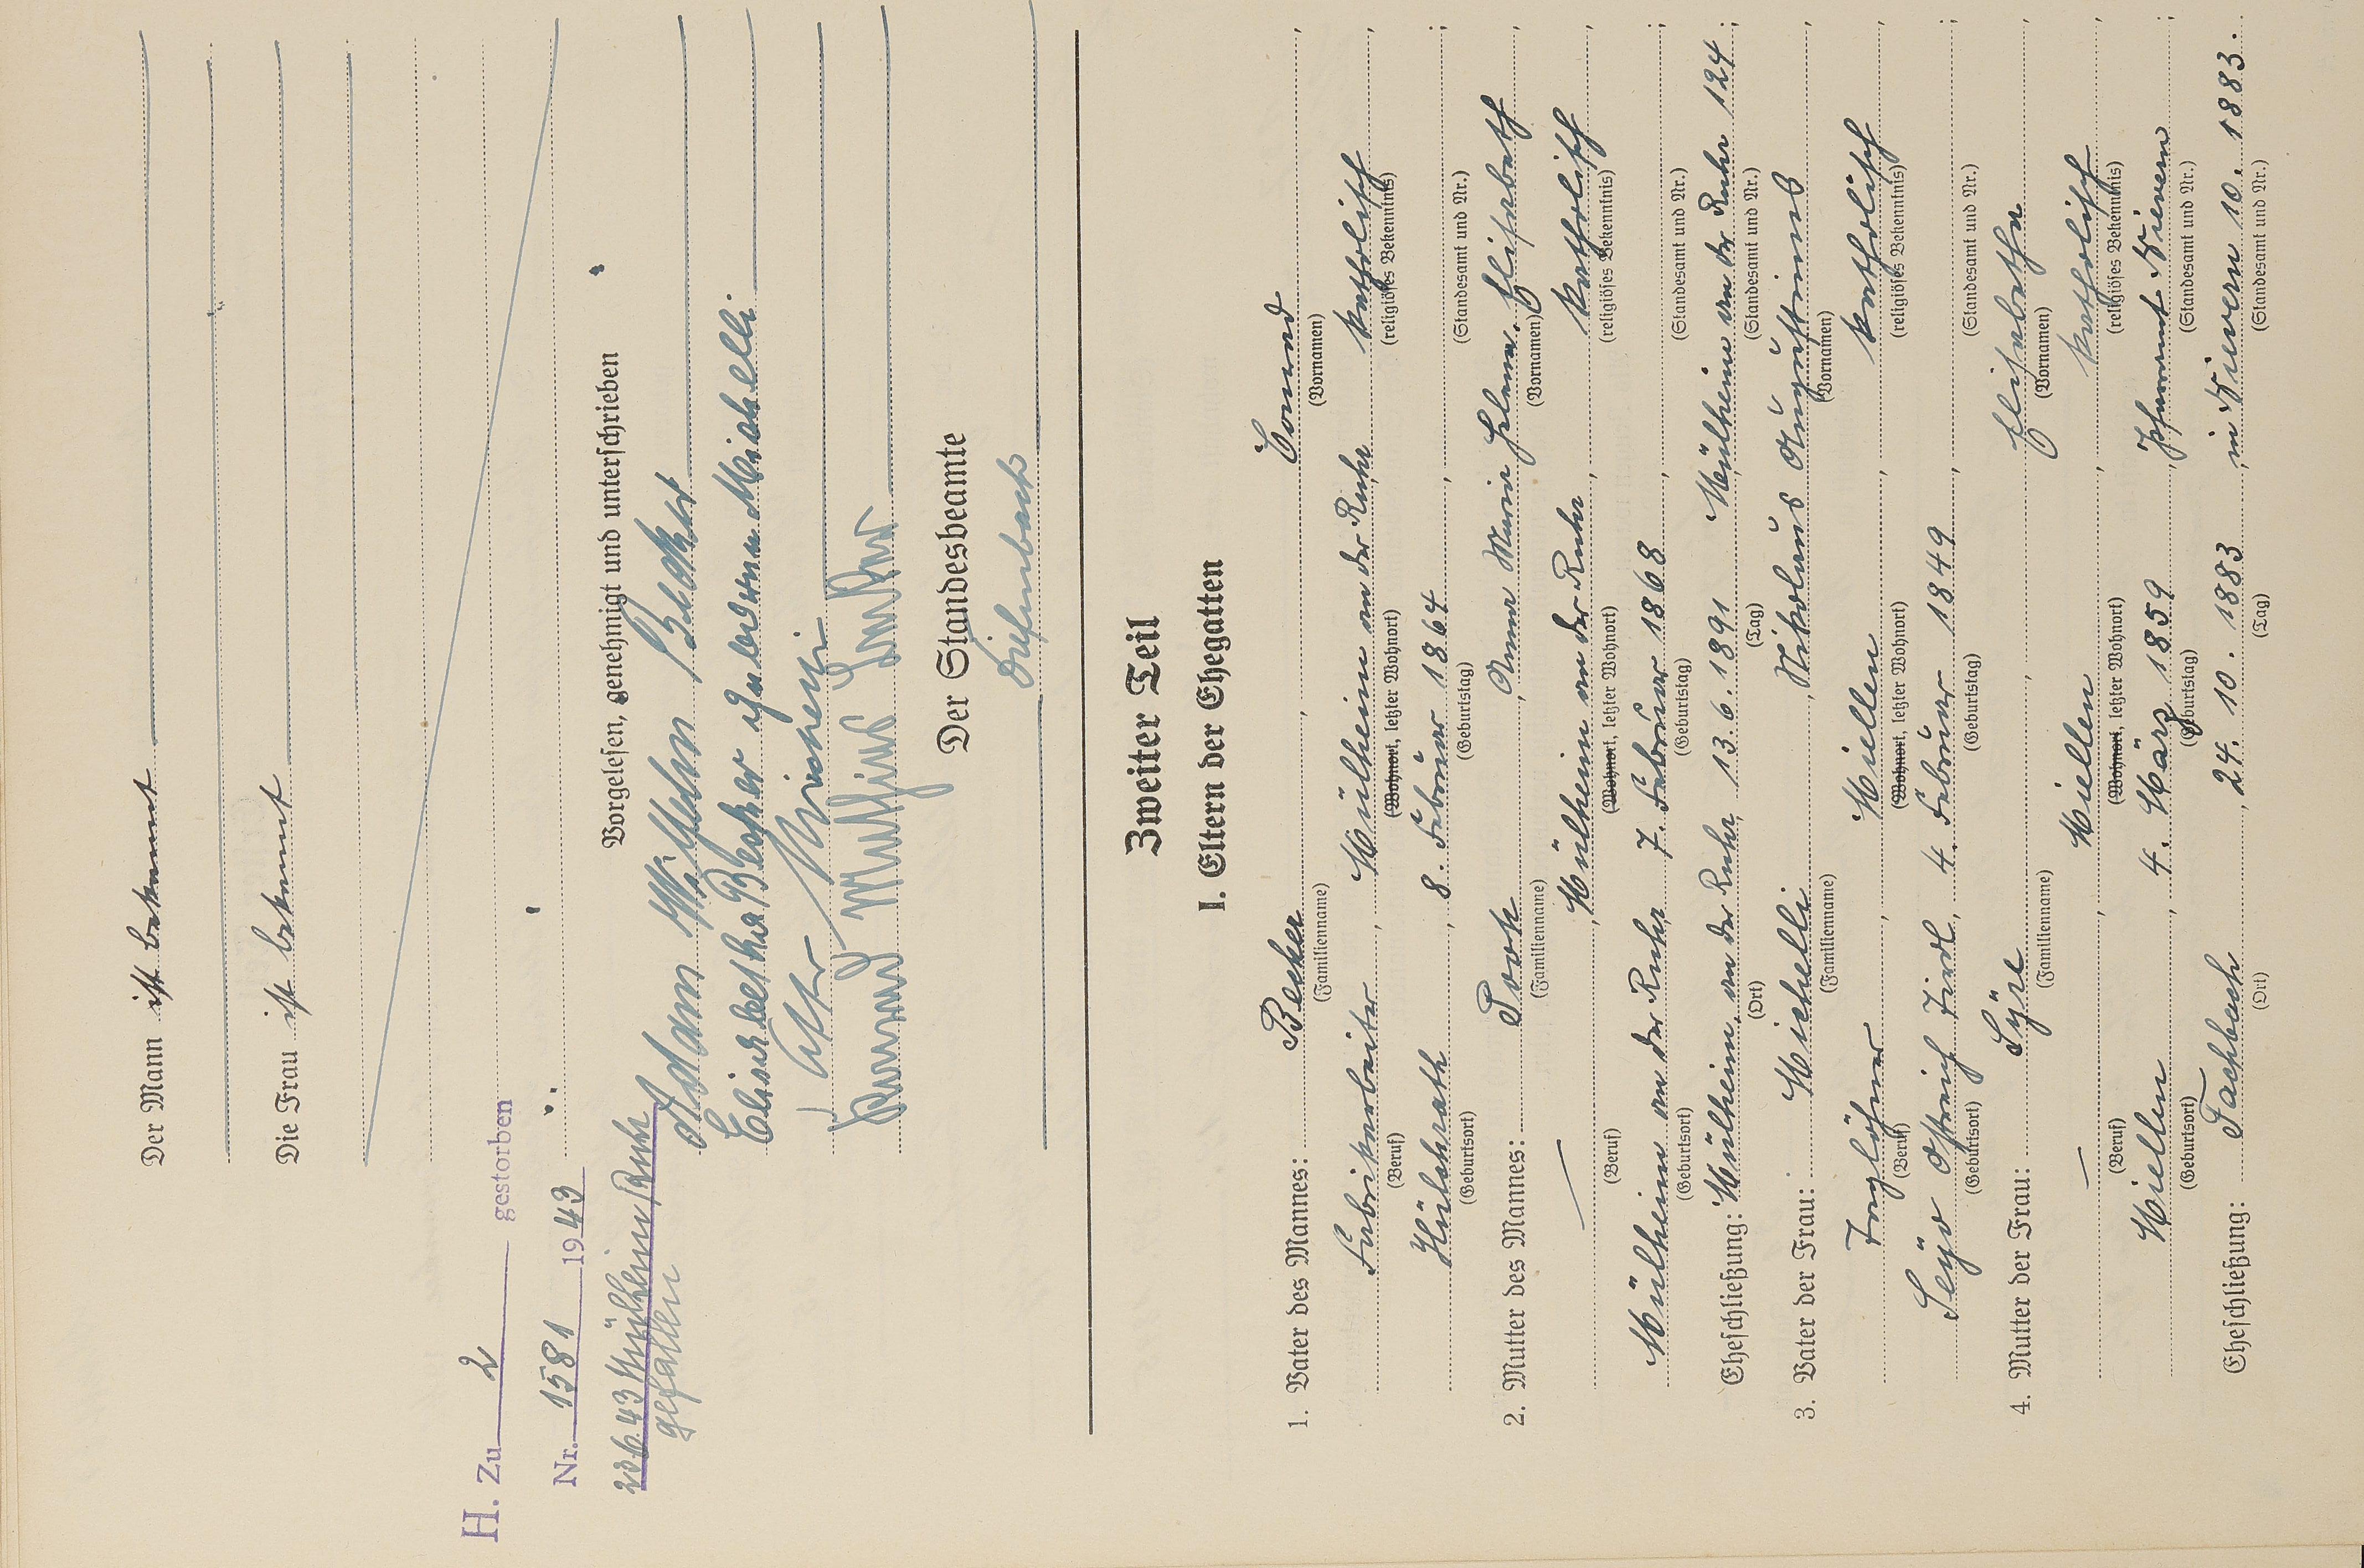 Der Mann ist bekannt
Die Frau ist bekannt
H. Zu 2 gestorben
Nr. 1581 1943
Mülheim Ruhr
gefallen
Vorgelesen, genehmigt und unterschrieben
Adam Wilhelm Becker
Elisabetha Becker geborene Michelli
Der Standesbeamte
Zweiter Teil
I. Eltern der Ehegatten
1. Vater des Mannes: Becker, Conrad,
(Familienname) (Vornamen)
Fabrikarbeiter, Mülheim an der Ruhr, katholisch,
(Beruf) (Wohnort, letzter Wohnort) (religiöses Bekenntnis)
Hülchrath, 8. Februar 1864, ;
(Geburtsort) (Geburtstag) (Standesamt und Nr.)
2. Mutter des Mannes: Pook, Anna Maria Helena Elisabeth,
(Familienname) (Vornamen)
—, Mülheim an der Ruhr, katholisch,
(Beruf) (Wohnort, letzter Wohnort) (religiöses Bekenntnis)
Mülheim an der Ruhr, 7. Februar 1868, ;
(Geburtsort) (Geburtstag) (Standesamt und Nr.)
Eheschließung: Mülheim an der Ruhr, 13.6.1891 Mülheim an der Ruhr 124;
(Ort) (Tag) (Standesamt und Nr.)
3. Vater der Frau: Michelli, Nikolaus Augustinus,
(Familienname) (Vornamen)
Taglöhner, Miellen, katholisch,
(Beruf) (Wohnort, letzter Wohnort) (religiöses Bekenntnis)
4. Februar 1849, ;
(Geburtsort) (Geburtstag) (Standesamt und Nr.)
4. Mutter der Frau: Elisabetha,
(Familienname) (Vornamen)
—, Miellen, katholisch,
(Beruf) (Wohnort, letzter Wohnort) (religiöses Bekenntnis)
Miellen, 4. März 1859, Pfarramt Nievern;
(Geburtsort) (Geburtstag) (Standesamt und Nr.)
Eheschließung: Fachbach, 24. 10. 1883, in Nievern 10. 1883.
(Ort) (Tag) (Standesamt und Nr.)